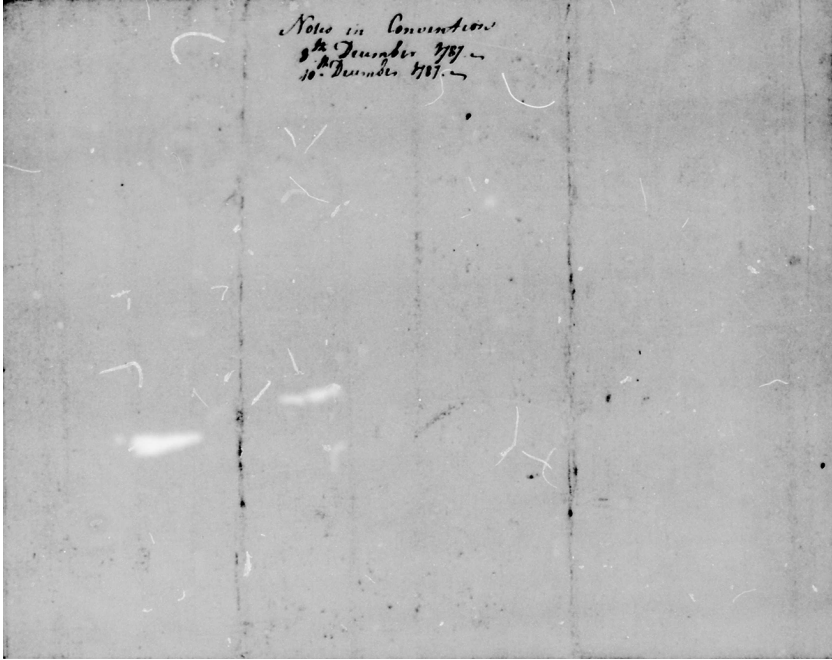 Notes in Convention
8th December 1787.
10th December 1787.